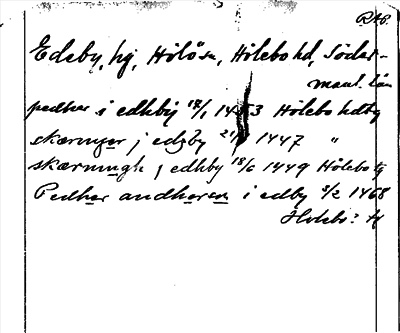 RAÖ.
Edeby, hg, Hölö sn, Hölebo hd, Söder-
manl. län
pedhar i edhby 18/1 14 3 Hölebo hdtg
skærnyger j edgby 1447 "
skærnungh j edhby 18/6 1449 Hölebo tg
Pedhar andharsen i edby 8/2 1468
Holebo: H